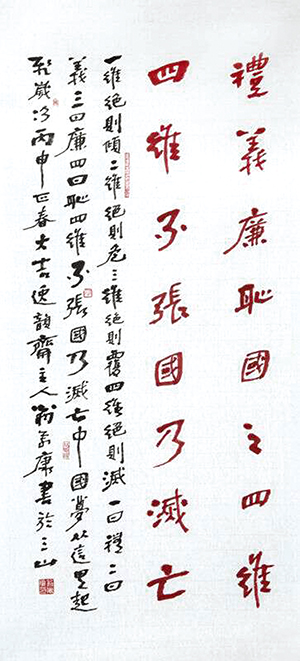 禮義廉恥國之四維
四維不張國乃滅亡
一維絕則傾二維絕則危三維絕則覆四維絕則滅一曰禮二曰
義三曰廉四曰恥四維不張國乃滅亡中國夢从這里起
航歲次丙申正春大吉逸韻齋主人翁康書於三山